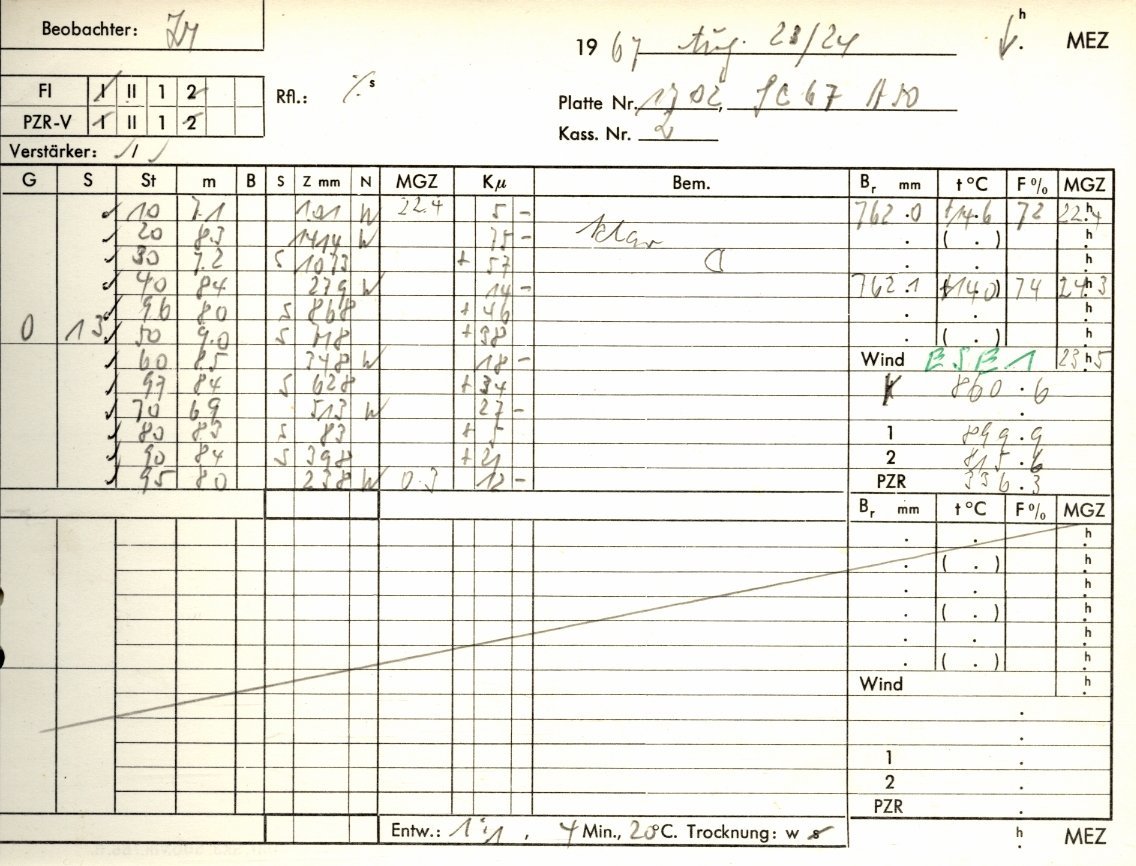 Beobachter:
19 67 Aug. 23/24 h MEZ
FI I II 1 2
Rfl.: s
Platte Nr. 1702, SC 67 A50
PZR-V I II 1 2
Kass. Nr. 2
Verstärker: 1
G S St m B S Z mm N MGZ Kμ Bem. Br mm t °C F % MGZ
10 7.1 101 W 22.4 5 - 762.0 +14.6 72 22.h4
20 8.3 1414 W 75 - klar ( . ) h
30 7.2 S 1073 + 57
40 8.4 279 W 14 - 762.1 (+14.0) 74 24.h3
96 8.0 S 868 + 46 h
0 13 50 9.0 S 718 + 38 ( . ) h
60 8.5 348 W 18 - Wind ESE 1 23.h5
97 8.4 S 628 + 34 860.6
70 6.9 513 W 27 -
80 8.3 S 83 + 5 1 899.9
90 8.4 S 398 + 21 2 815.6
95 8.0 238 W 0.3 12 - PZR 336.3
Br mm t °C F % MGZ
. . h
. ( . ) h
. . h
. ( . ) h
. . h
. ( . ) h
Wind h
1 .
2 .
PZR .
Entw.: 1:1, 4 Min., 20°C. Trocknung: w s h MEZ